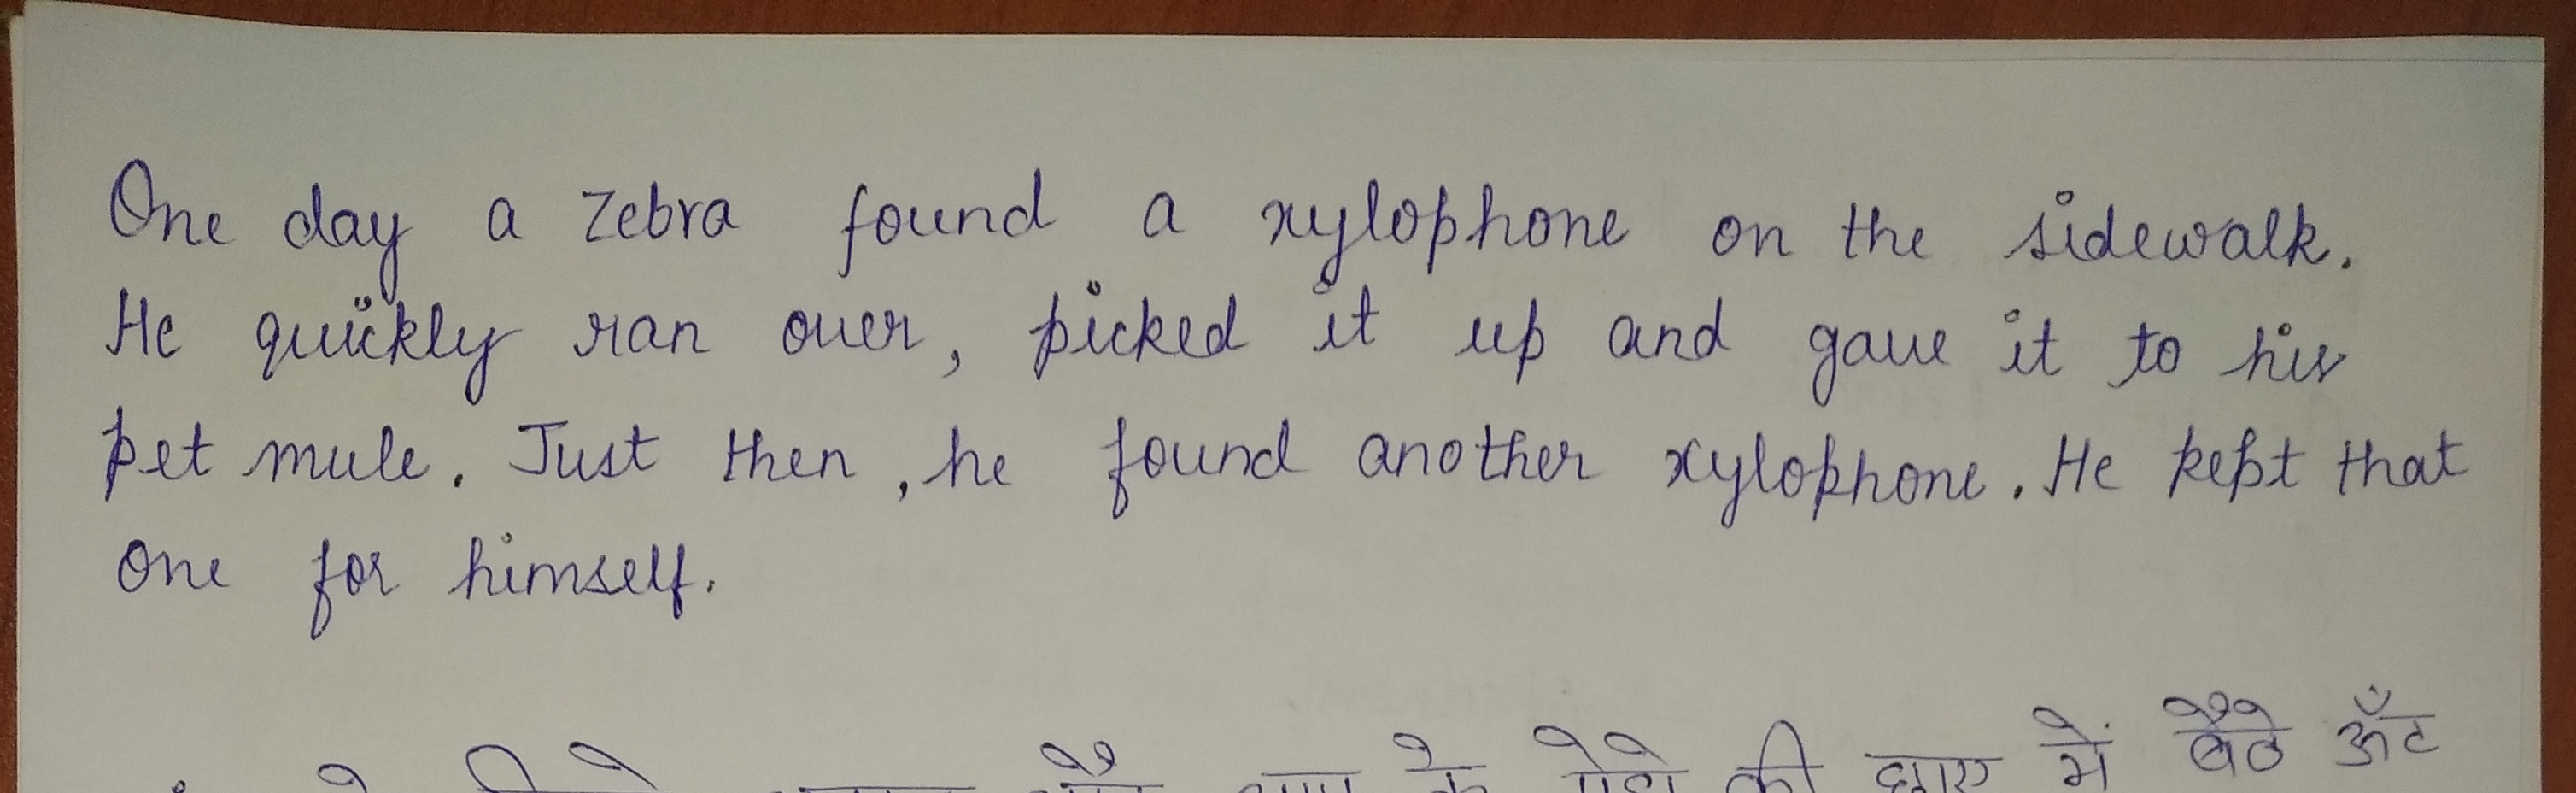 One day a zebra found a xylophone on the sidewalk.
He quickly ran over, picked it up and gave it to his
pet mule. Just then, he found another xylophone. He kept that
one for himself.
की छाए में बैठे ऊँट